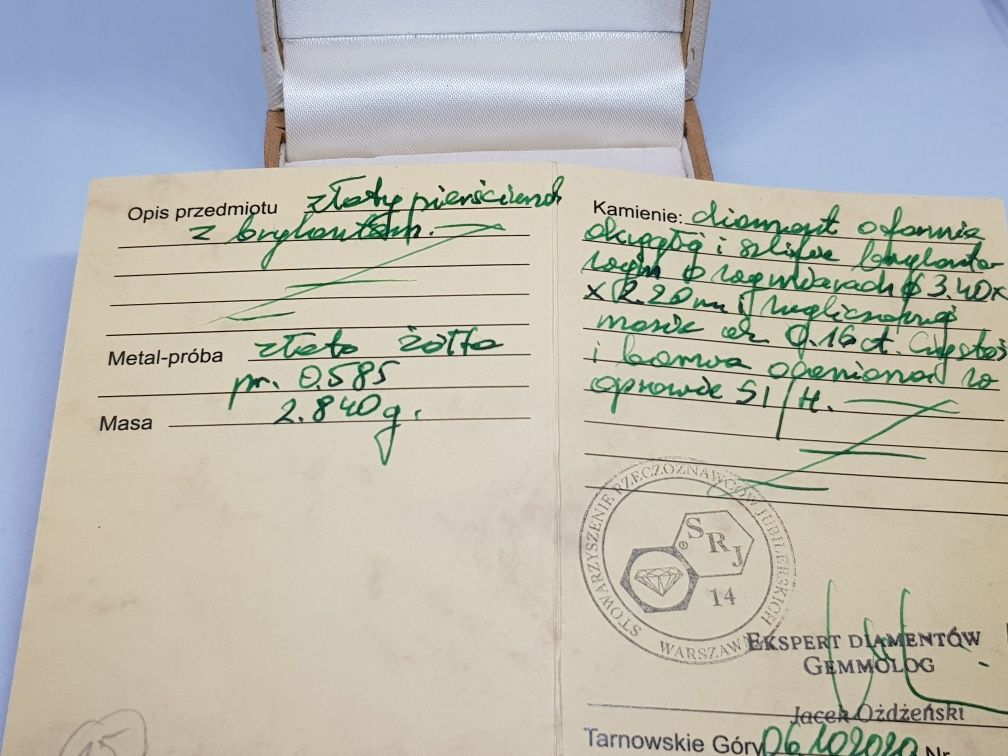 Opis przedmiotu złoty pierścionek
z brylantem.
Metal-próba złoto żółte
pr. 0.585
Masa 2.840 g.
15
Kamienie: diament o formie
okrągłej i szlifie brylanto-
wym o wymiarach ϕ 3.40 x
x 2.20 mm i
masie ok. 0.16 ct. Czystość
i barwa oceniona w
oprawie SI/H.
STOWARZYSZENIE RZECZOZNAWCÓW JUBILERSKICH
WARSZAWA
® SRJ
14
EKSPERT DIAMENTÓW
GEMMOLOG
Jacek Ożdżeński
Tarnowskie Góry 06.10.2020 Nr